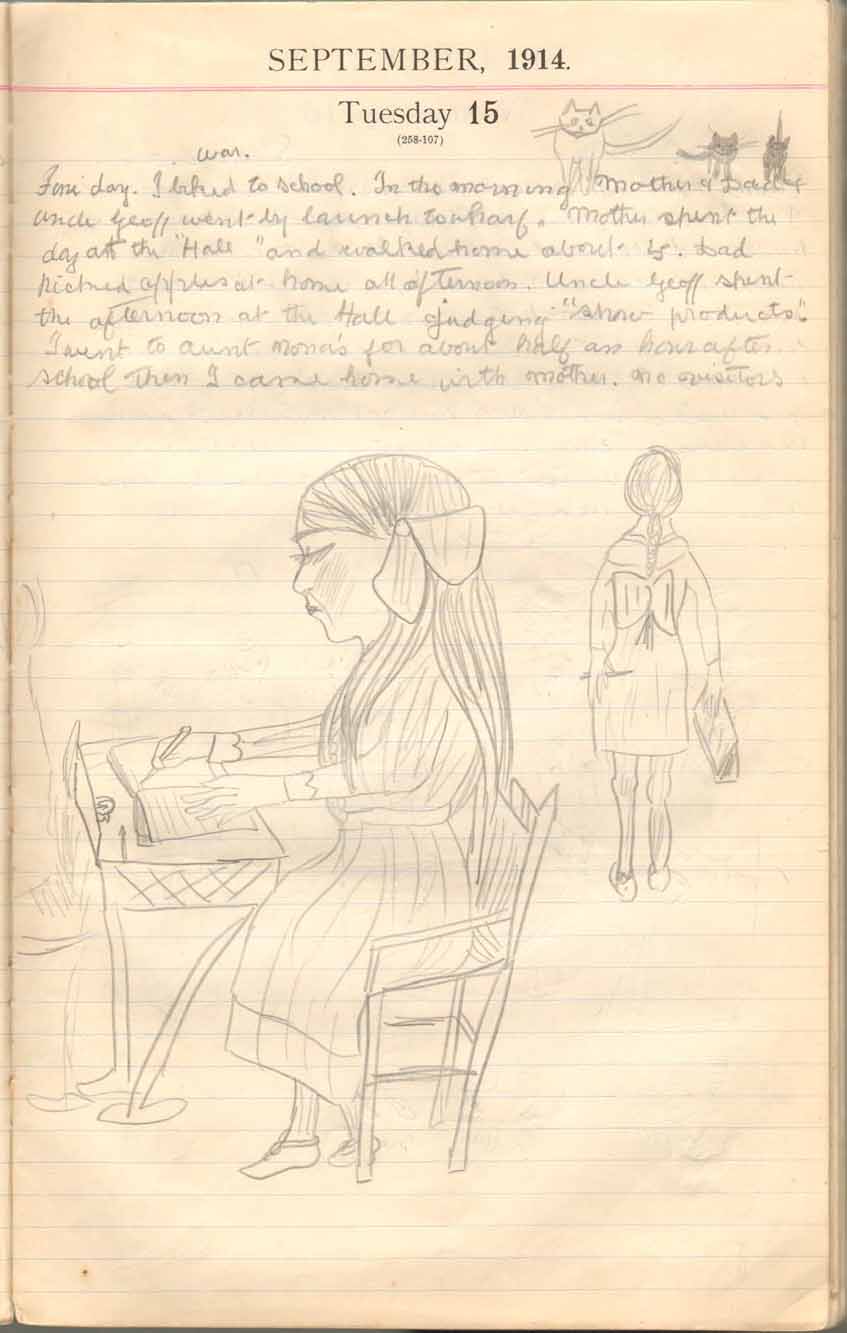 SEPTEMBER, 1914.
Tuesday 15
(258-107)
war.
Fine day. I biked to school. In the morning Mother & Dad &
Uncle Geoff went by launch to wharf. Mother spent the
day at the "Hall" and walked home about 5. Dad
picked apples at home all afternoon. Uncle Geoff spent
the afternoon at the Hall judging "show products".
I went to aunt Mona's for about half an hour after
school then I came home with mother. No visitors